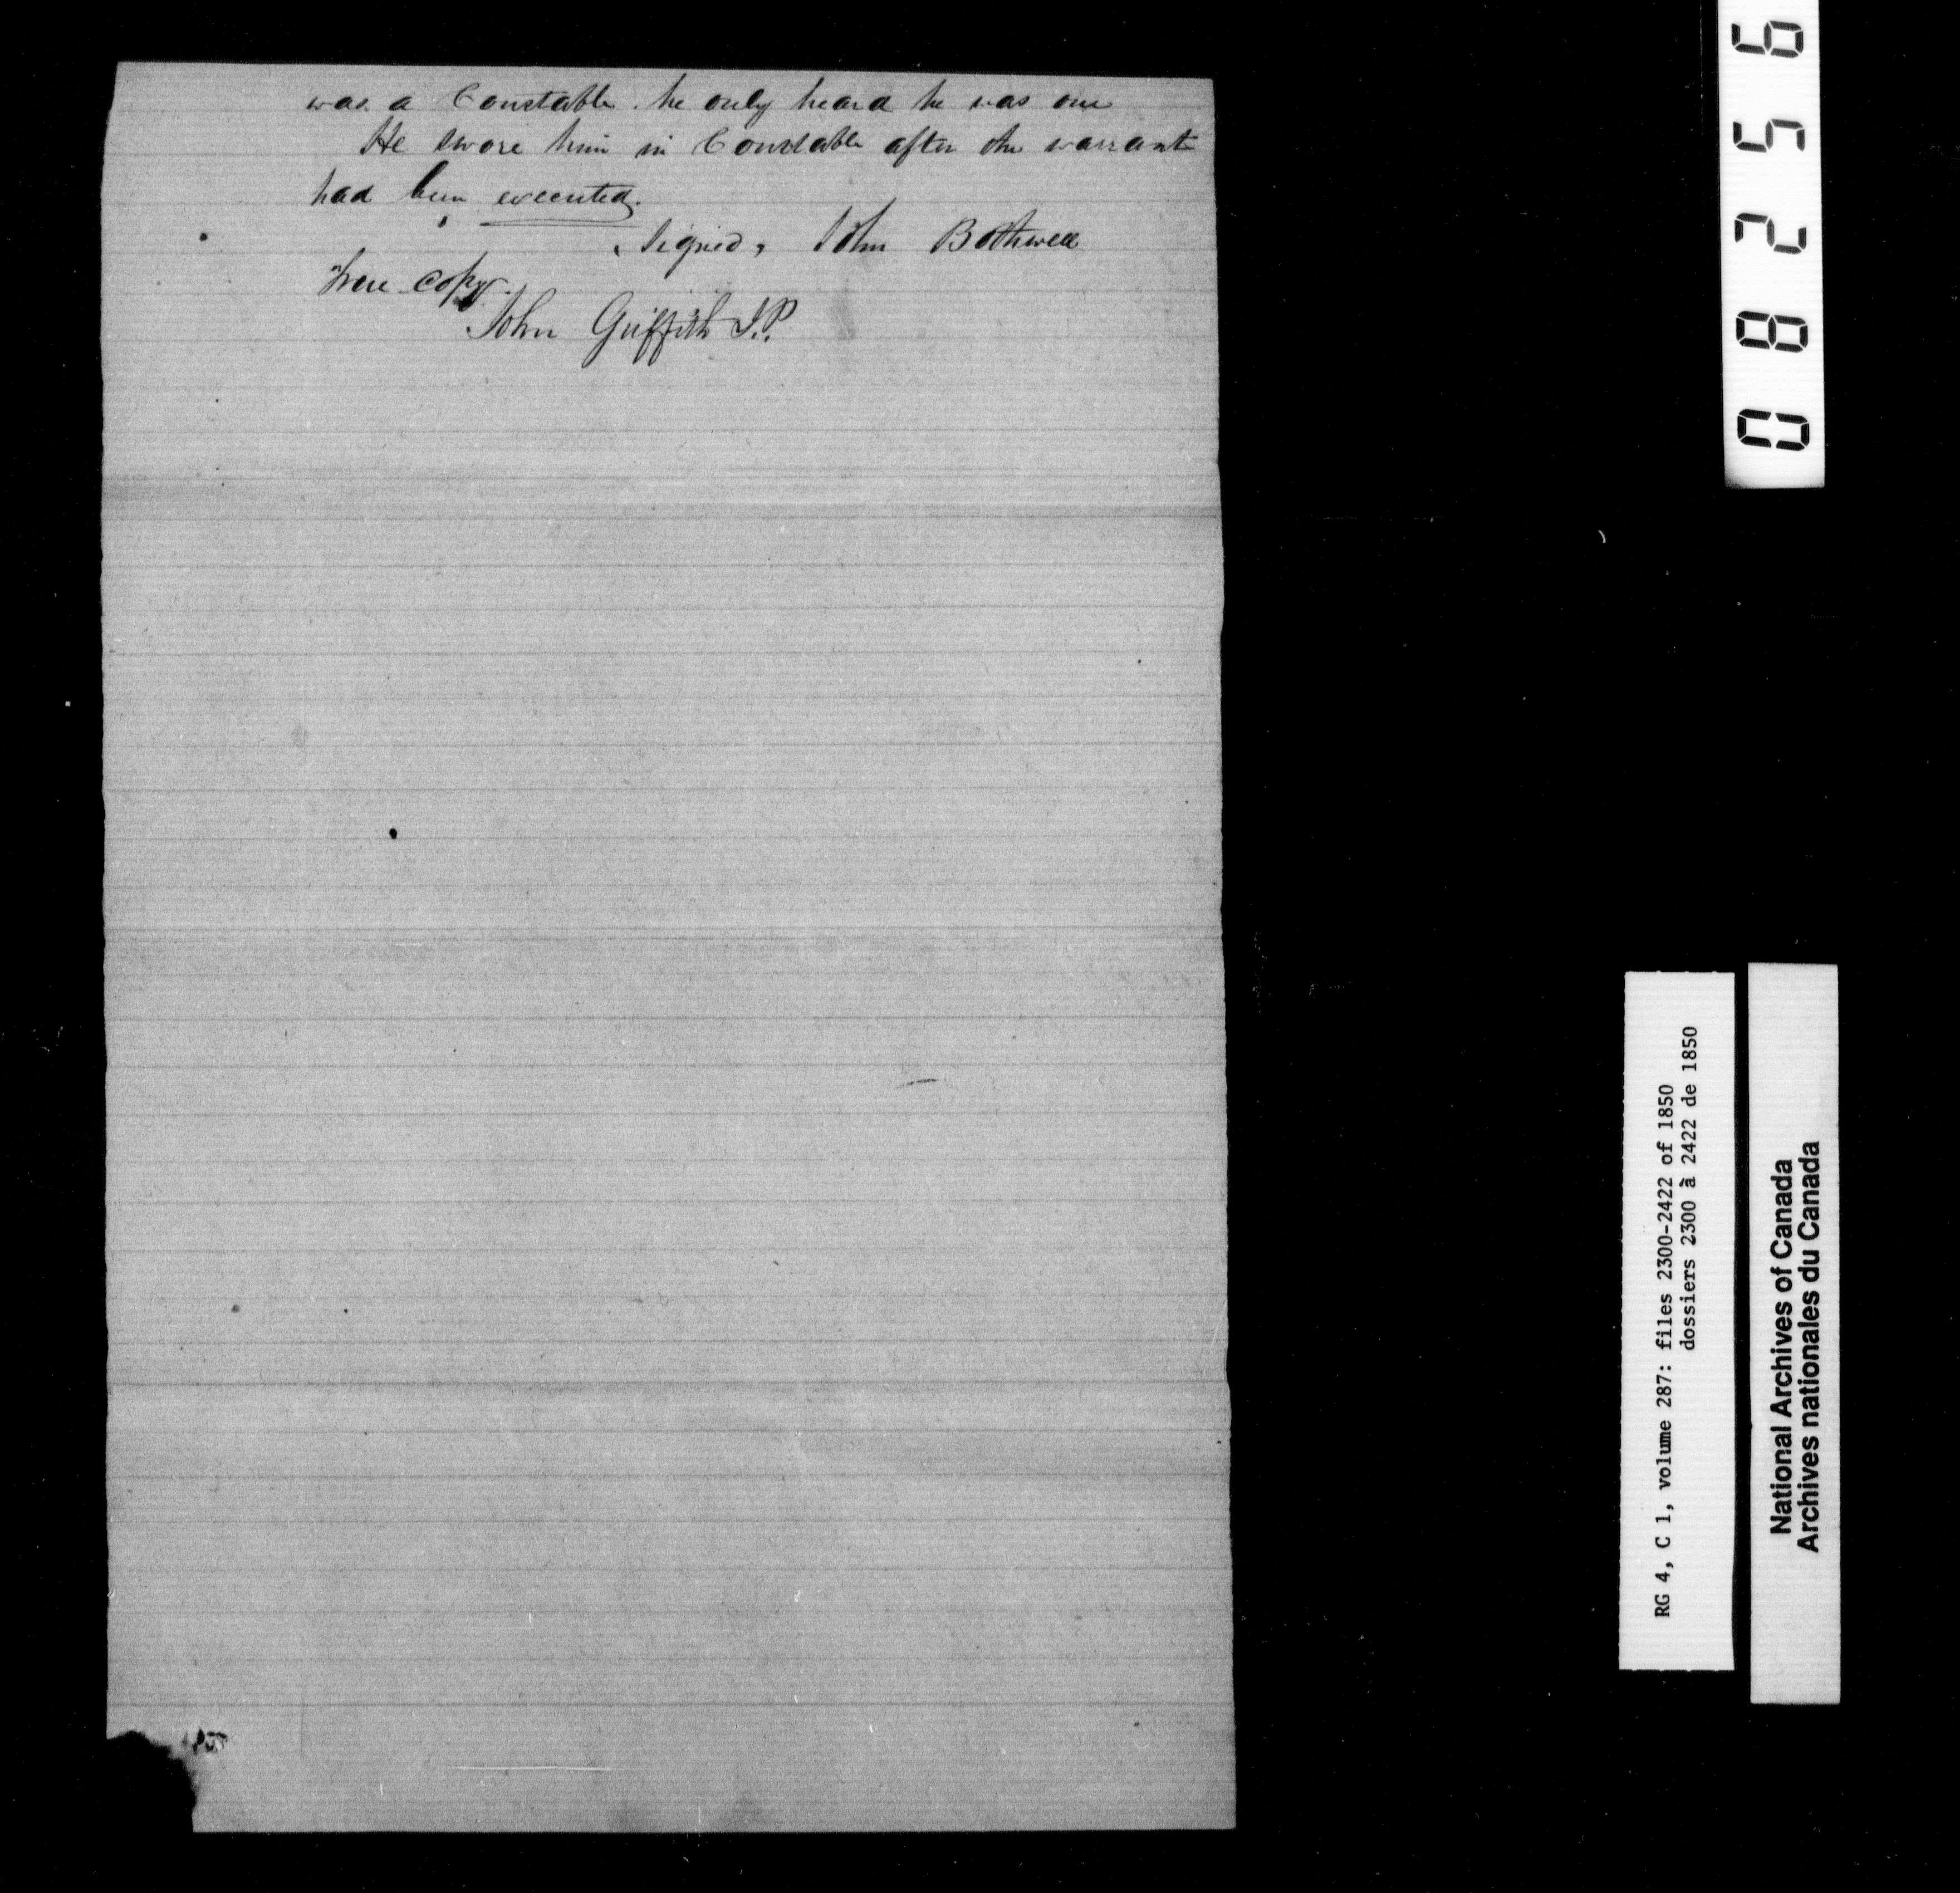 was a Constable. he only heard he was one
He swore him in Constable after the warrant
had been executed.
Signed, John Bothwell
True copy.
John Griffith J.P.
08256
RG 4, C 1, volume 287: files 2300-2422 of 1850
dossiers 2300 à 2422 de 1850
National Archives of Canada
Archives nationales du Canada